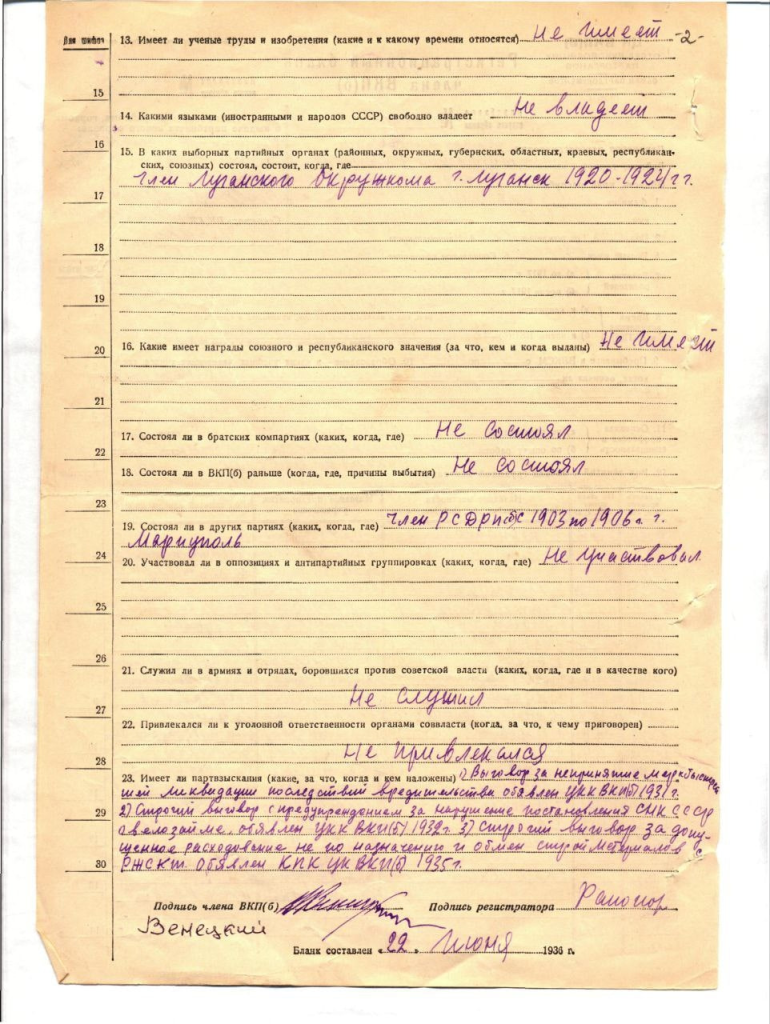 Для шифра
13. Имеет ли ученые труды и изобретения (какие и к какому времени относятся) Не имеет -2-
15
14. Какими языками (иностранными и народов СССР) свободно владеет Не владеет
16
15. В каких выборных партийных органах (районных, окружных, губернских, областных, краевых, республикан-
ских, союзных) состоял, состоит, когда, где
Член Луганского Окружкома г. Луганск 1920-1924 г г.
17
18
19
16. Какие имеет награды союзного и республиканского значения (за что, кем и когда выданы) Не имеет
20
21
17. Состоял ли в братских компартиях (каких, когда, где) Не состоял
22
18. Состоял ли в ВКП(б) раньше (когда, где, причины выбытия) Не состоял
23
19. Состоял ли в других партиях (каких, когда, где) Член РСДРП(б) с 1903 по 1906 г. г.
Мариуполь
24
20. Участвовал ли в оппозициях и антипартийных группировках (каких, когда, где) Не участвовал
25
26
21. Служил ли в армиях и отрядах, боровшихся против советской власти (каких, когда, где и в качестве кого)
Не служил
27
22. Привлекался ли к уголовной ответственности органами соввласти (когда, за что, к чему приговорен)
Не привлекался
28
23. Имеет ли партвзыскания (какие, за что, когда и кем наложены) 1) Выговор за непринятие мер к быстрей
шей ликвидации последствий вредительства объявлен ЦКК ВКП(б) 1931 г.
29
2) Строгий выговор с предупреждением за нарушение постановления СНК СССР
о велозайме, объявлен ЦКК ВКП(б) 1932 г. 3) Строгий выговор за допу-
щенное расходование не по назначению и обмен стройматериалов с
30
РЖСКТ. объявлен КПК ЦК ВКП(б) 1935 г.
Подпись члена ВКП(б) Подпись регистратора Рапопор
Венецкий
Бланк составлен «22» Июня 1936 г.